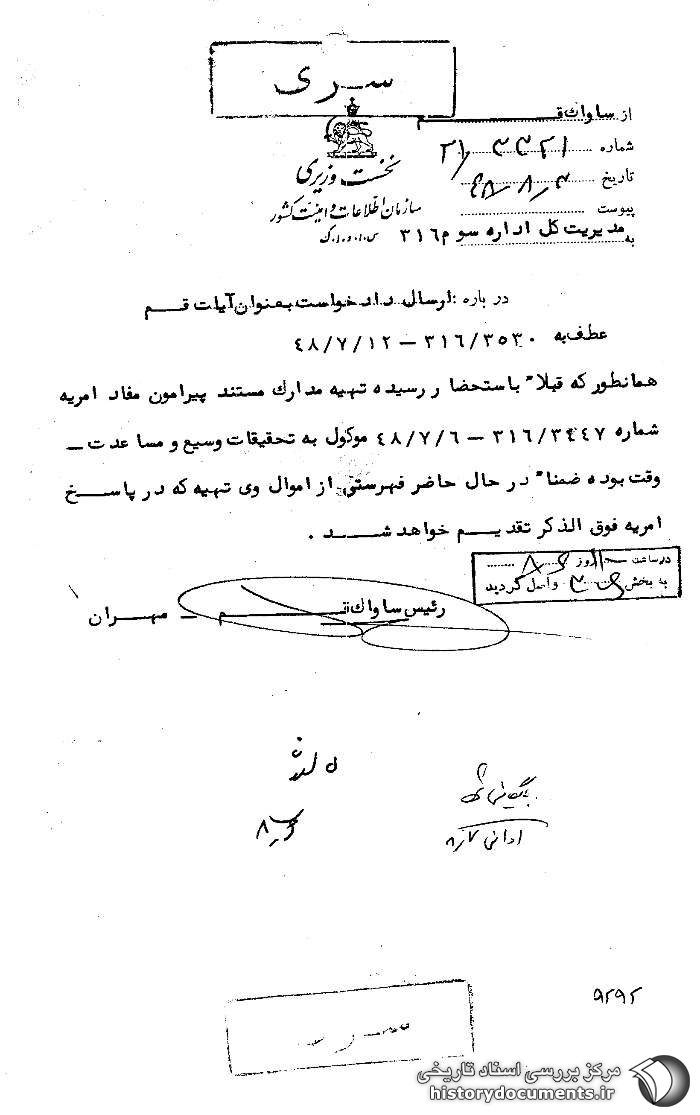 سری
از ساواك قم
شماره ۲۱/۳۳۲۱
تاریخ ۴۸/۸/۳
نخست وزیری
سازمان اطلاعات و امنیت کشور
س.ا.و.ا.ک
پیوست
به مدیریت کل اداره سوم ۳۱۶
درباره : ارسال دادخواست بعنوان آیات قم
عطف به ۳۱۶/۳۵۳۰ – ۴۸/۷/۱۲
همانطور که قبلا" باستحضار رسیده تهیه مدارك مستند پیرامون مفاد امریه
شماره ۳۱۶/۳۴۴۷ – ۴۸/۷/۶ موکول به تحقیقات وسیع و مساعدت –
وقت بوده ضمنا" در حال حاضر فهرستی از اموال وی تهیه که در پاسخ
امریه فوق الذکر تقدیم خواهد شد .
در ساعت روز ۸
به بخش واصل گردید
رئیس ساواك قم – مهران
بایگانی شود
۸
۹۲۹۲
سری
مرکز بررسی اسناد تاریخی
historydocuments.ir